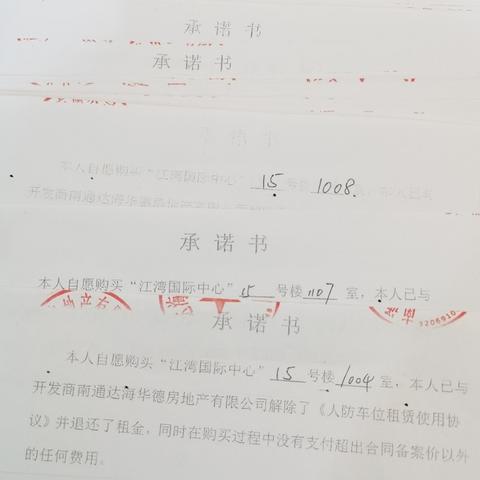 承诺书
承诺书
承诺书
本人自愿购买“江湾国际中心” 15 号楼 1008 室，本人已与
开发商南通达海华德房地产
承诺书
本人自愿购买“江湾国际中心” 15 号楼 1107 室，本人已与
3206910
承诺书
本人自愿购买“江湾国际中心” 15 号楼 1004 室，本人已与
开发商南通达海华德房地产有限公司解除了《人防车位租赁使用协
议》并退还了租金，同时在购买过程中没有支付超出合同备案价以外
的任何费用。